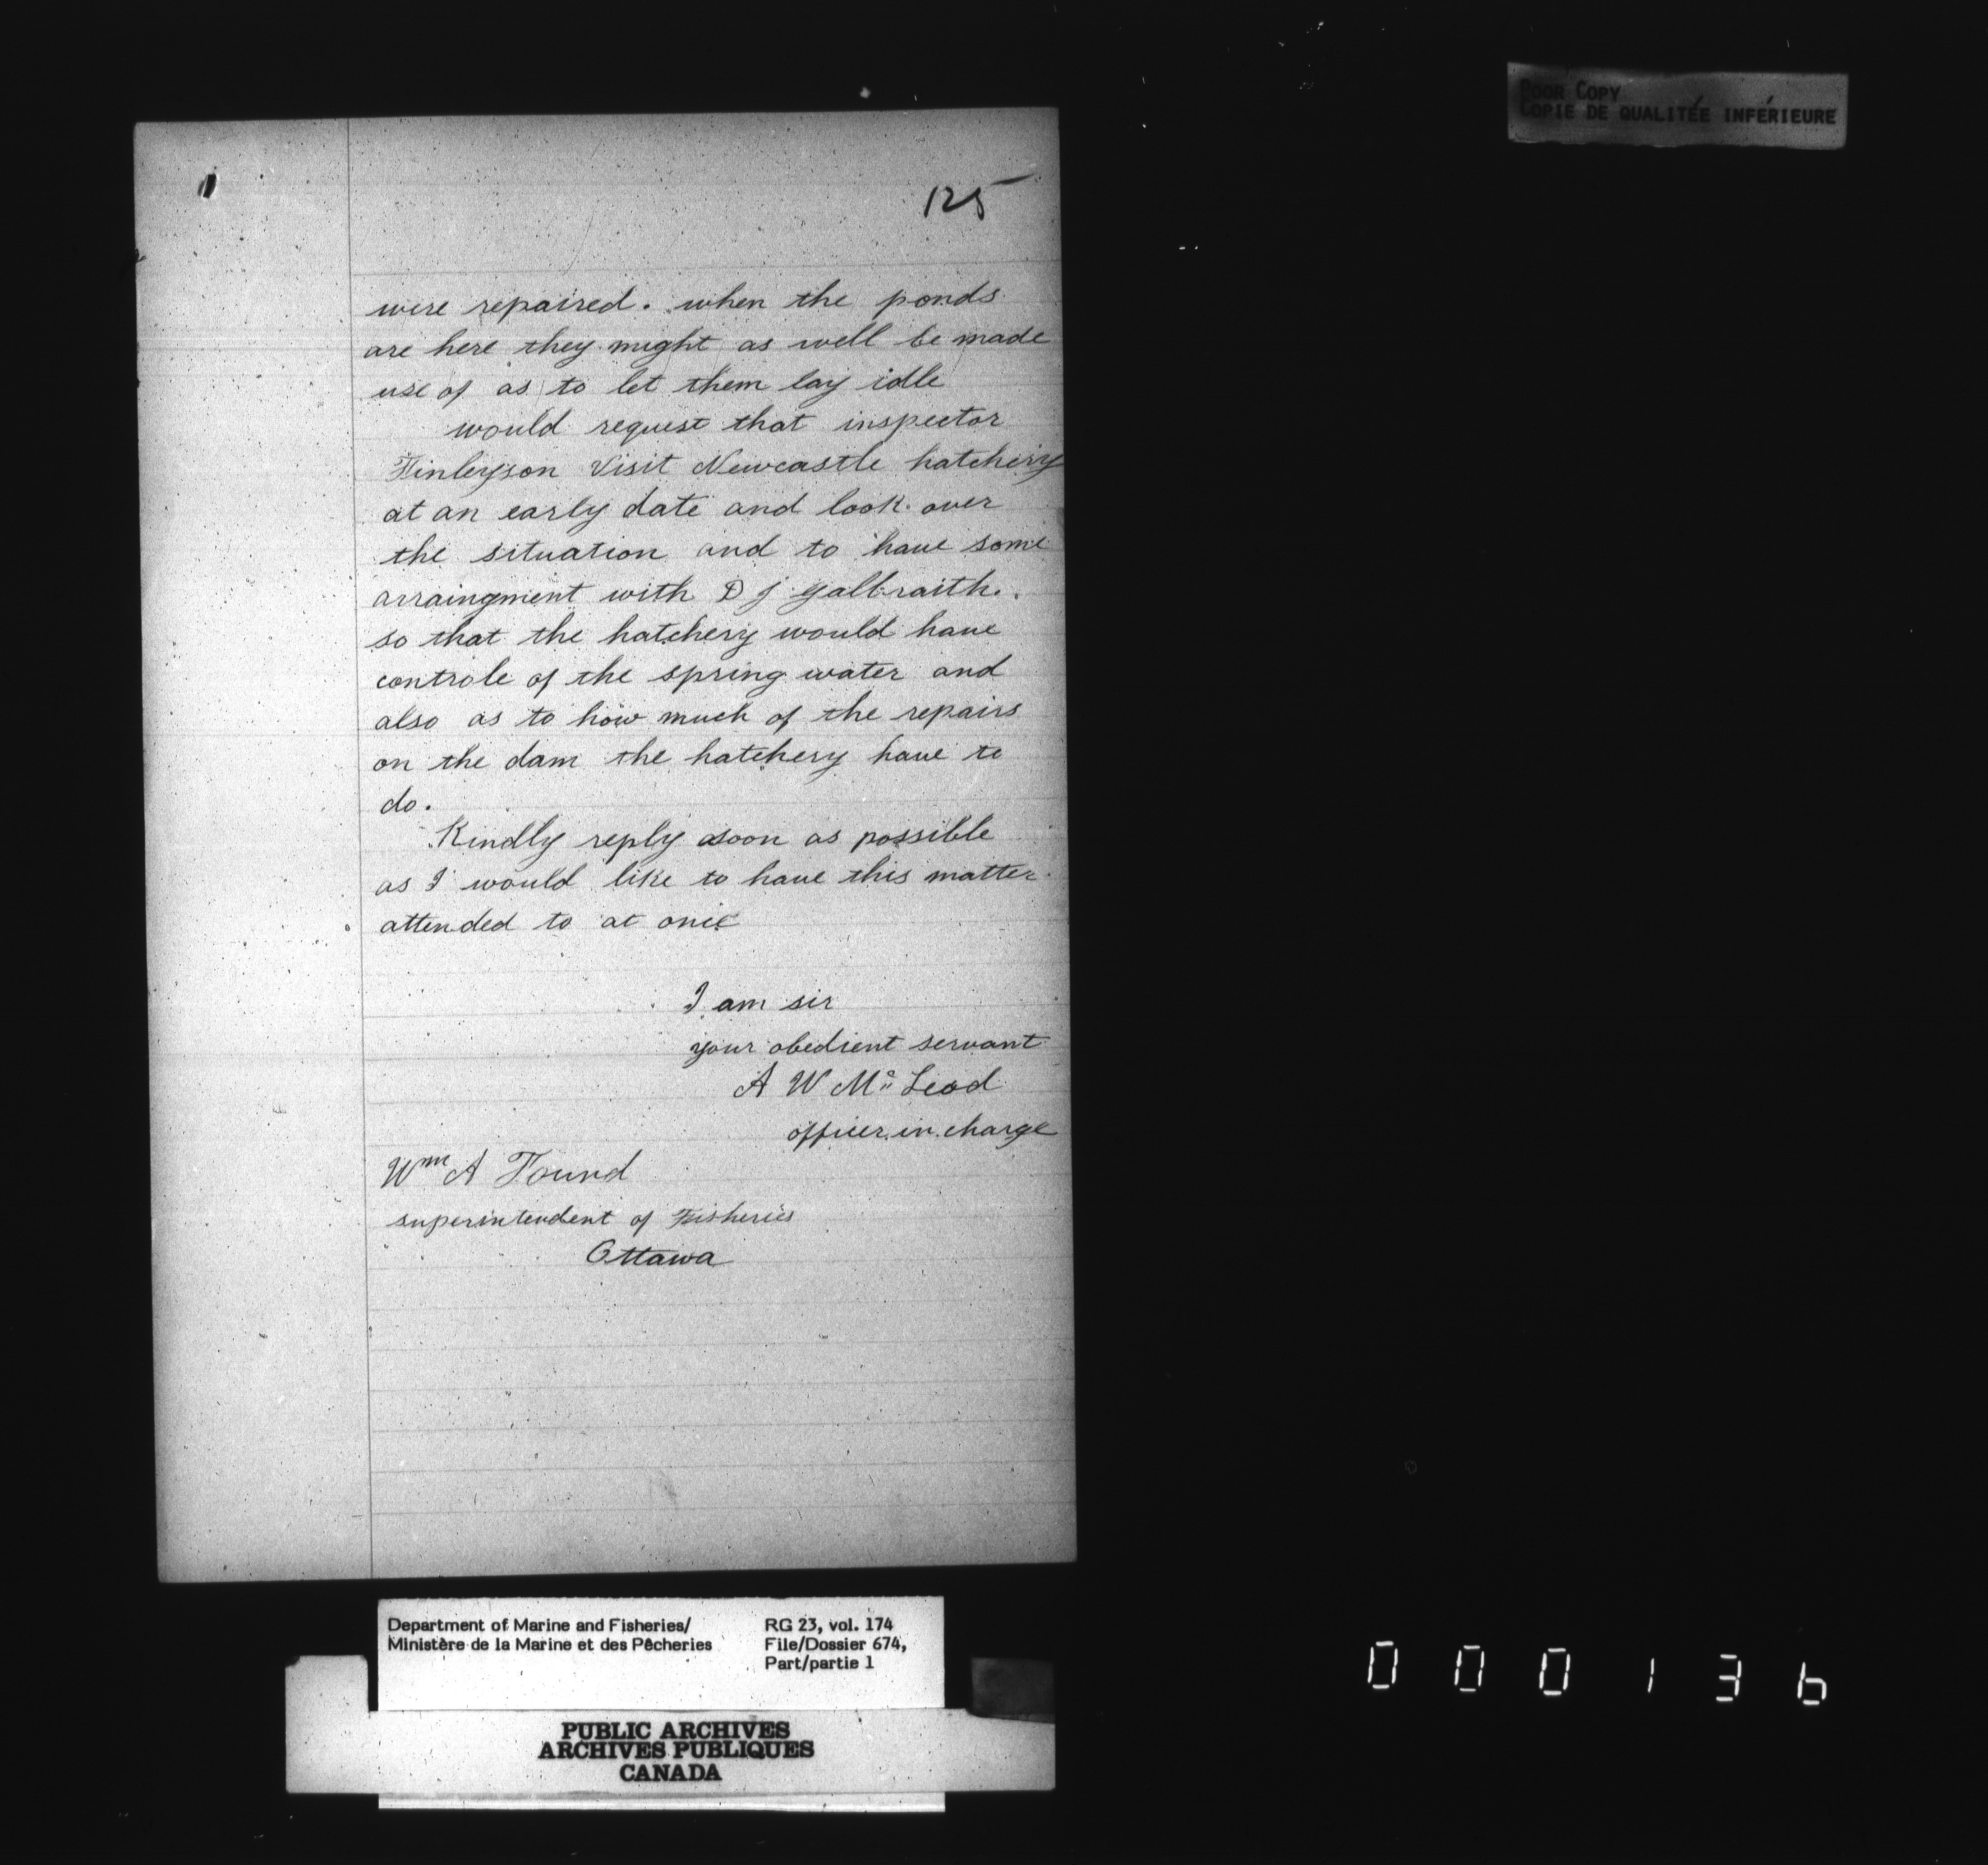 POOR COPY
COPIE DE QUALITÉE INFÉRIEURE
125
were repaired. when the ponds
are here they might as well be made
use of as to let them lay idle
would request that inspector
Finleyson Visit Newcastle hatchery
at an early date and look over
the situation and to have some
arraingment with D J Galbraith.
so that the hatchery would have
controle of the spring water and
also as to how much of the repairs
on the dam the hatchery have to
do.
Kindly reply soon as possible
as I would like to have this matter
attended to at once
I am sir
your obedient servant
A W Mc Leod
officer in charge
Wm A Found
superintendent of Fisheries
Ottawa
Department of Marine and Fisheries/
Ministère de la Marine et des Pêcheries
RG 23, vol. 174
File/Dossier 674,
Part/partie 1
PUBLIC ARCHIVES
ARCHIVES PUBLIQUES
CANADA
000136